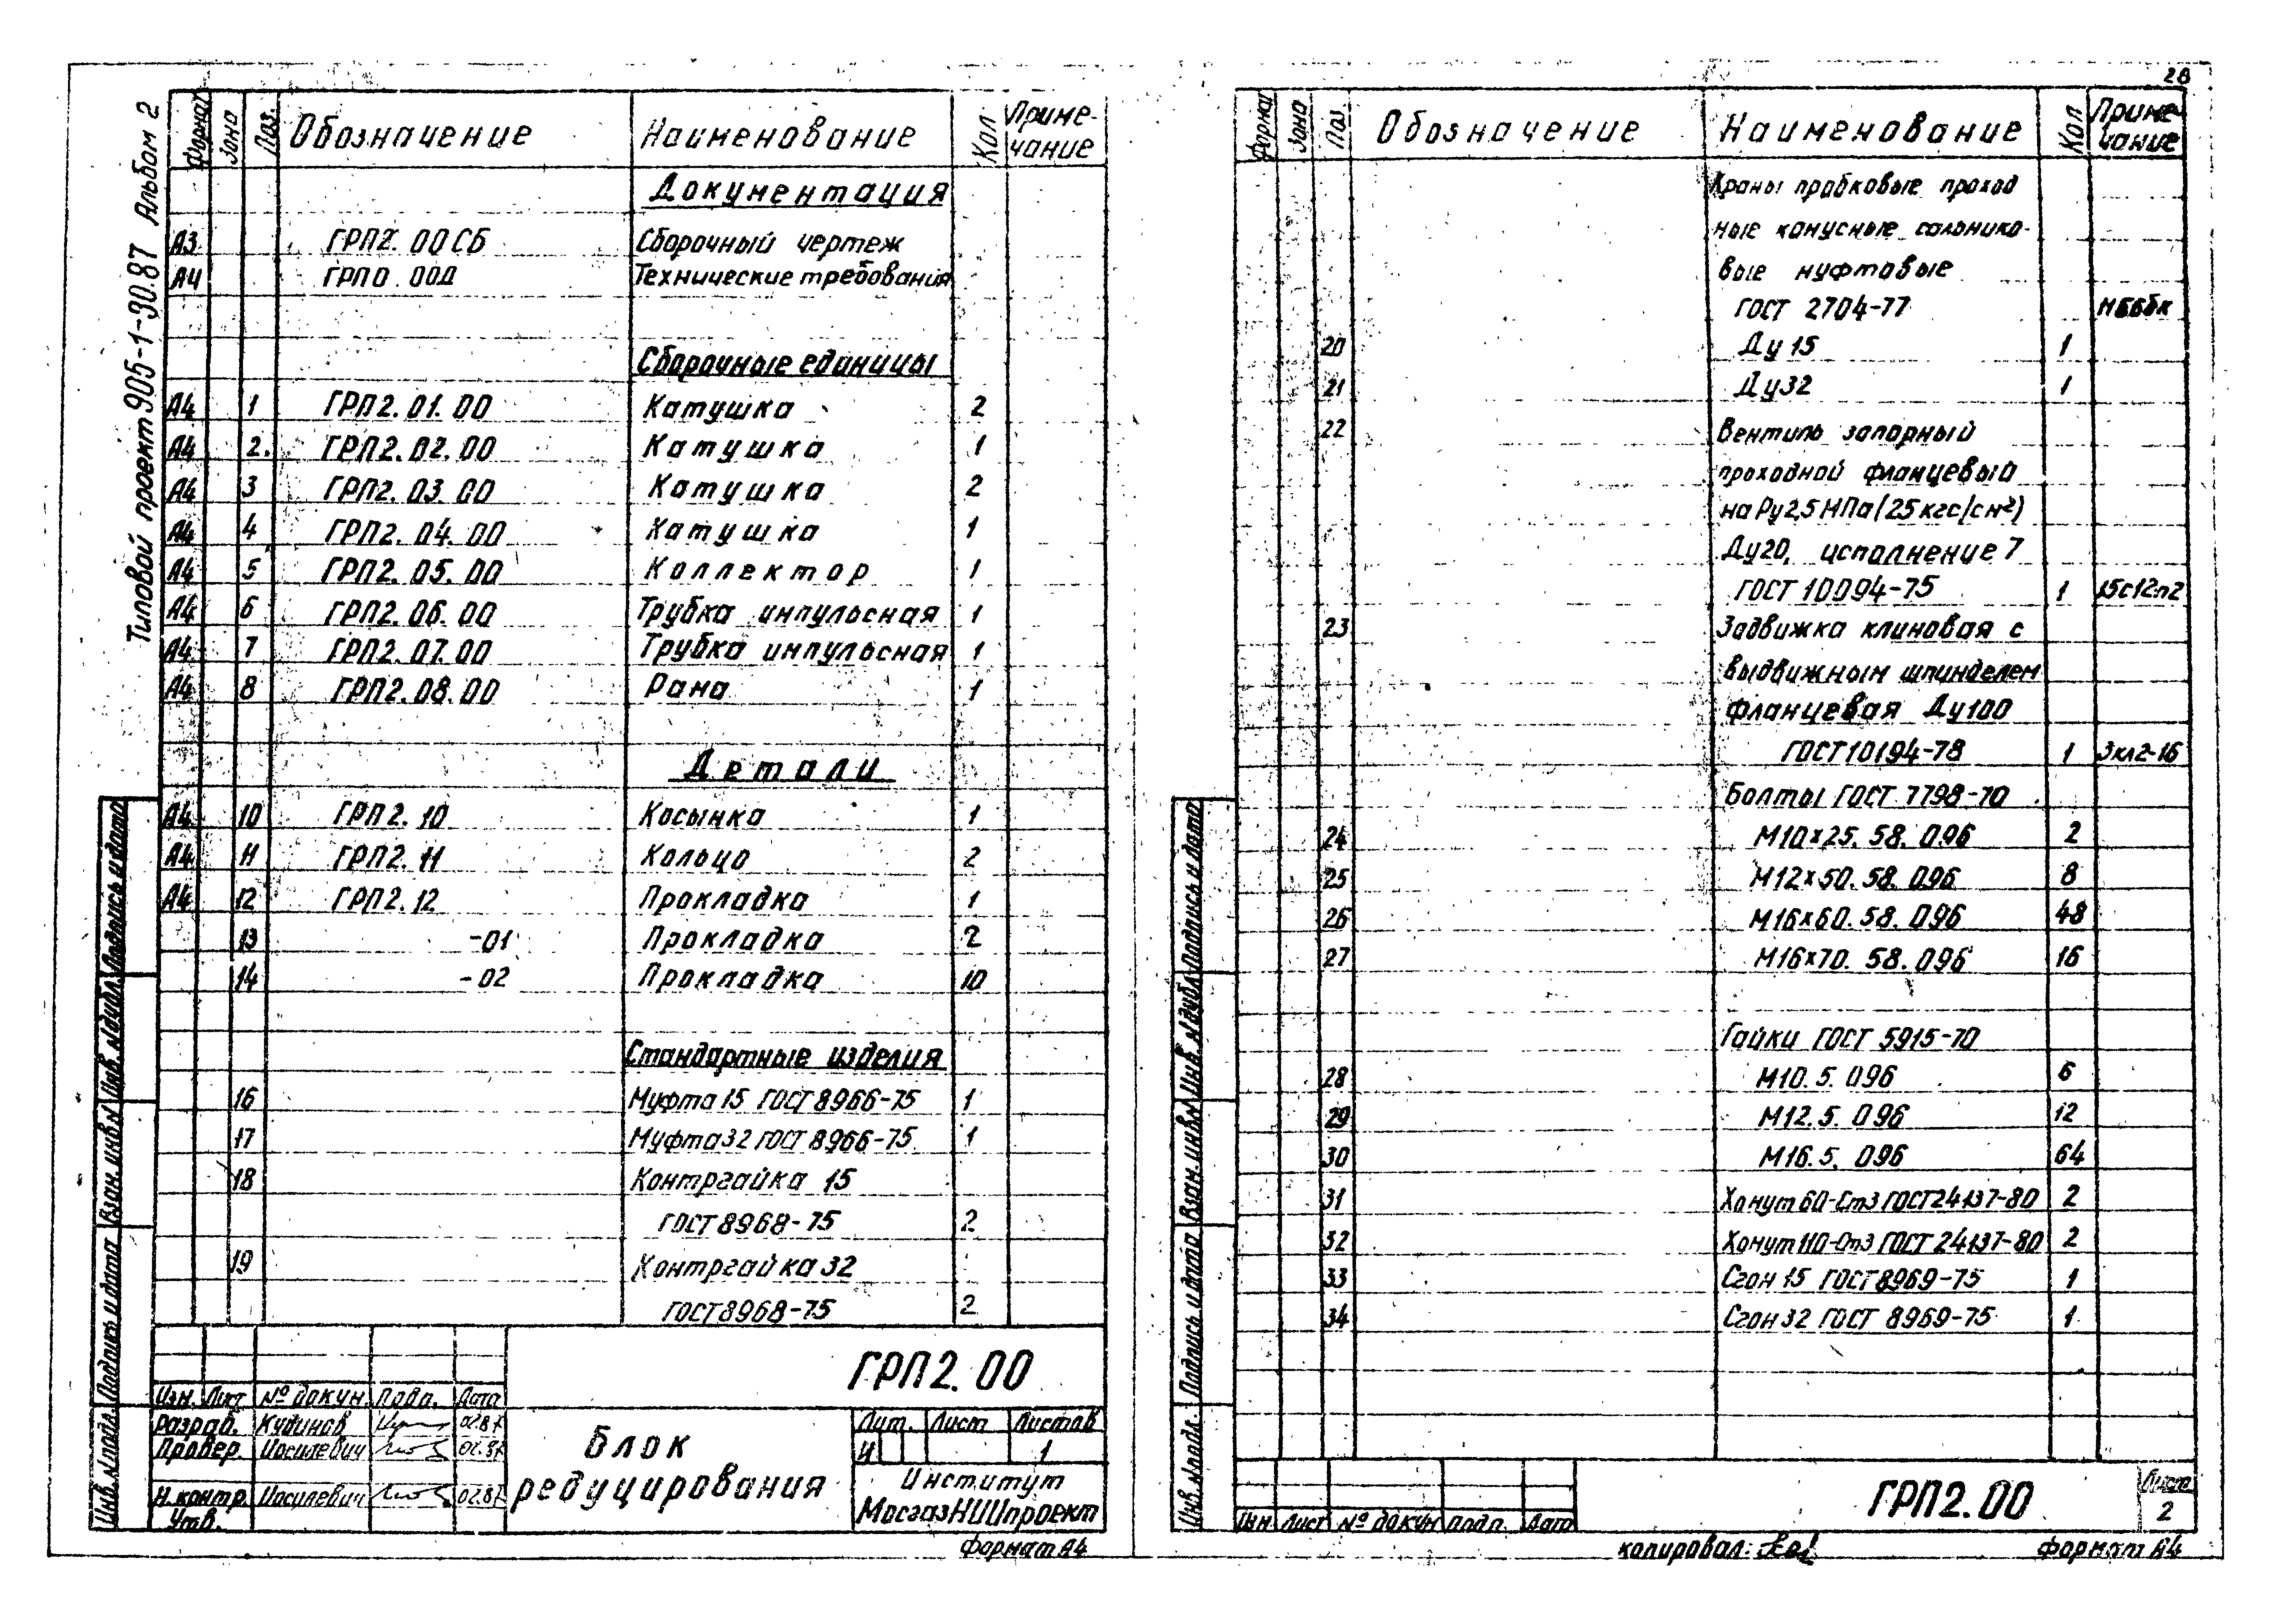 Типовой проект 905-1-30.87 Альбом 2
Формат Зона Поз. Обозначение Наименование Кол Приме-
чание
Документация
А3 ГРП2.00СБ Сборочный чертеж
А4 ГРП0.00Д Технические требования
Сборочные единицы
А4 1 ГРП2.01.00 Катушка 2
А4 2. ГРП2.02.00 Катушка 1
А4 3 ГРП2.03.00 Катушка 2
А4 4 ГРП2.04.00 Катушка 1
А4 5 ГРП2.05.00 Коллектор 1
А4 6 ГРП2.06.00 Трубка импульсная 1
А4 7 ГРП2.07.00 Трубка импульсная 1
А4 8 ГРП2.08.00 Рама 1
Детали
А4 10 ГРП2.10 Косынка 1
А4 11 ГРП2.11 Кольцо 2
А4 12 ГРП2.12 Прокладка 1
13 -01 Прокладка 2
14 -02 Прокладка 10
Стандартные изделия
16 Муфта 15 ГОСТ 8966-75 1
17 Муфта 32 ГОСТ 8966-75 1
18 Контргайка 15
ГОСТ 8968-75 2
19 Контргайка 32
ГОСТ 8968-75 2
Инв. № подл. Подпись и дата Взам. инв № Инв. № дубл. Подпись и дата
ГРП2.00
Изм. Лист № докум. Подп. Дата
Разраб. Кудинов 02.87
Провер. Иосилевич 02.87
Н. контр. Иосилевич 02.87
Утв.
Блок
редуцирования
Лит. Лист Листов
И 1
Институт
МосгазНИИпроект
Формат А4
28
Формат Зона Поз Обозначение Наименование Кол Приме-
чание
Краны пробковые проход
ные конусные сальнико-
вые муфтовые
ГОСТ 2704-77 11Б6бк
20 Ду 15 1
21 Ду 32 1
22 Вентиль запорный
проходной фланцевый
на Ру 2,5 МПа (25 кгс/см²)
Ду20, исполнение 7
ГОСТ 10094-75 1 15с12п2
23 Задвижка клиновая с
выдвижным шпинделем
фланцевая Ду100
ГОСТ 10194-78 1 3кл2-16
Болты ГОСТ 7798-70
24 М10×25. 58. 096 2
25 М12×50. 58. 096 8
26 М16×60. 58. 096 48
27 М16×70. 58. 096 16
Гайки ГОСТ 5915-70
28 М10. 5. 096 6
29 М12. 5. 096 12
30 М16. 5. 096 64
31 Хомут 60-Ст3 ГОСТ 24137-80 2
32 Хомут 110-Ст3 ГОСТ 24137-80 2
33 Сгон 15 ГОСТ 8969-75 1
34 Сгон 32 ГОСТ 8969-75 1
Инв. № подл. Подпись и дата Взам. инв № Инв. № дубл. Подпись и дата
Изм Лист № докум Подп. Дата
ГРП2.00
Лист
2
копировал:
Формат А4